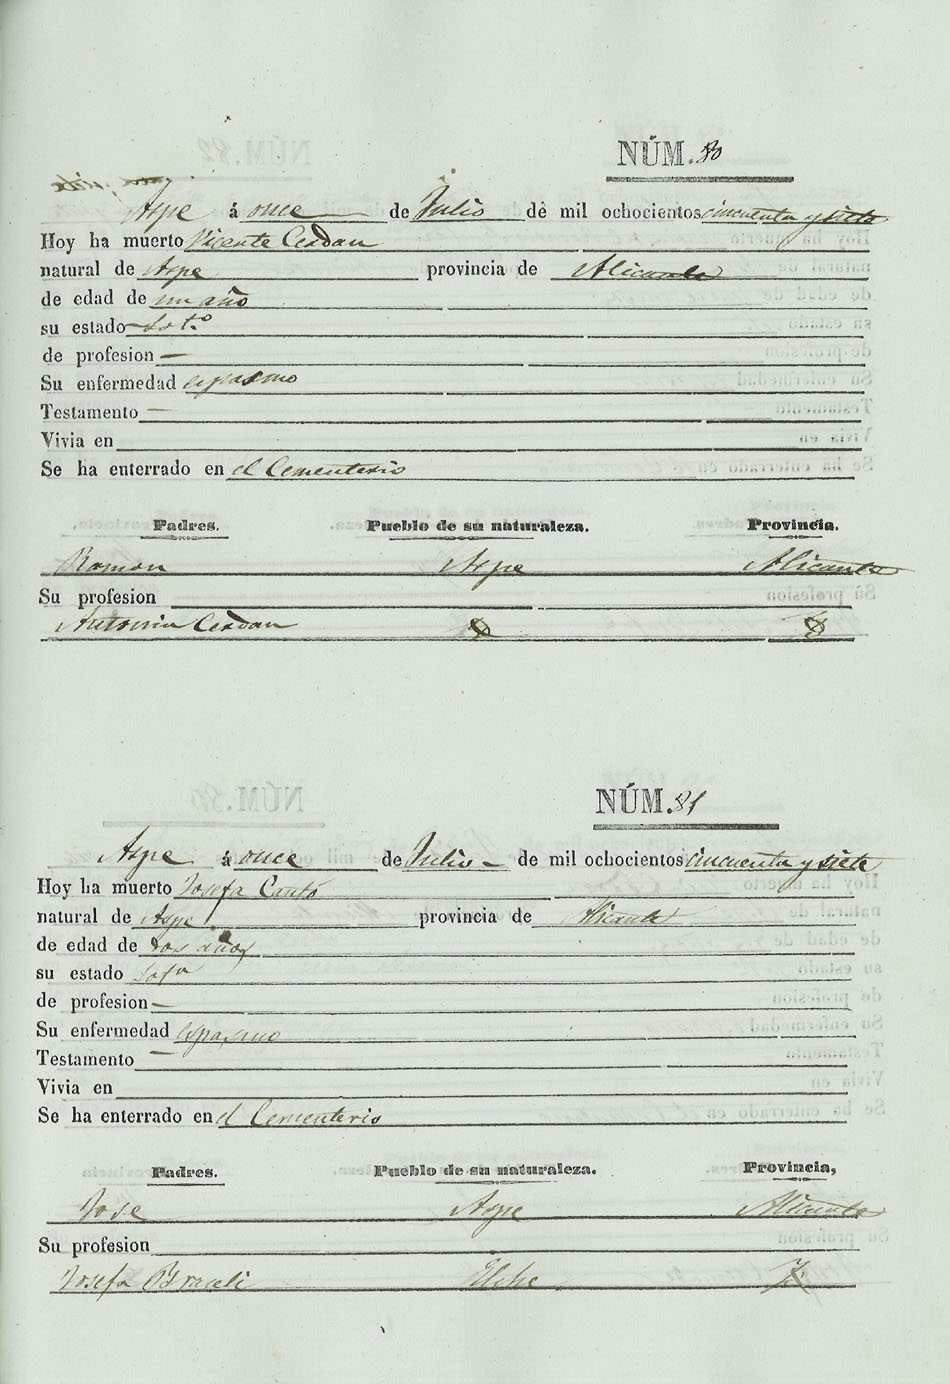 NÚM. 80
Aspe á once de Julio de mil ochocientos cincuenta y siete
Hoy ha muerto Vicente Cerdan
natural de Aspe provincia de Alicante
de edad de un año
su estado Solt.º
de profesion —
Su enfermedad espasmo
Testamento —
Vivia en
Se ha enterrado en el Cementerio
Padres. Pueblo de su naturaleza. Provincia.
Ramon Aspe Alicante
Su profesion
Antonia Cerdan
NÚM. 81
Aspe á once de Julio — de mil ochocientos cincuenta y siete
Hoy ha muerto Josefa Cantó
natural de Aspe provincia de Alicante
de edad de dos años
su estado Solª
de profesion —
Su enfermedad espasmo
Testamento —
Vivia en
Se ha enterrado en el Cementerio
Padres. Pueblo de su naturaleza. Provincia,
Jose Aspe Alicante
Su profesion
Josefa Elche